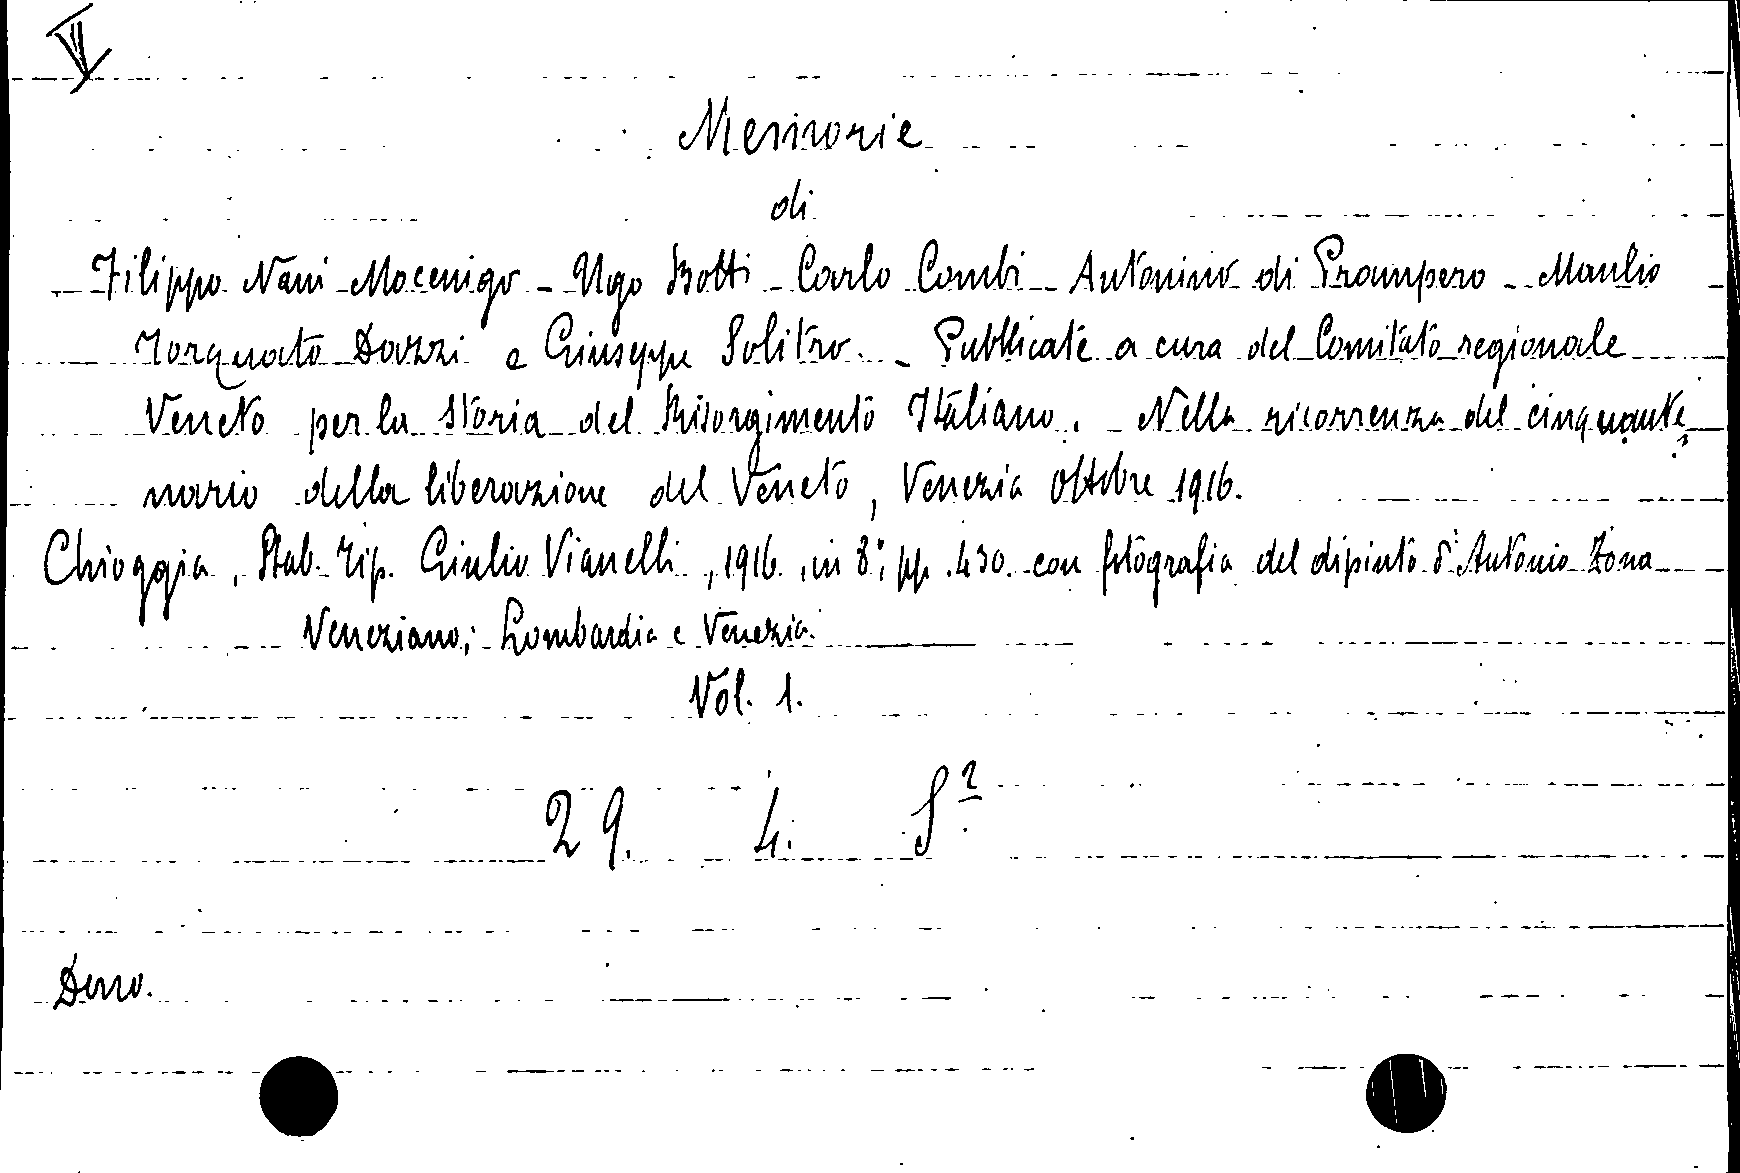 Memorie
di
Filippo Nani Mocenigo - Ugo Botti - Carlo Combi - Antonino di Prampero - Manlio
Torquato Dazzi e Giuseppe Solitro. - Pubblicate a cura del Comitato regionale
Veneto per la storia del Risorgimento Italiano. - Nella ricorrenza del cinquante=
nario della liberazione del Veneto, Venezia Ottobre 1916.
Chioggia, Stab. Tip. Giulio Vianelli, 1916. in 8°; pp. 430. con fotografia del dipinto d'Antonio Zona
Veneziano; Lombardia e Venezia.
Vol. 1.
29. 4. S²
Dono.